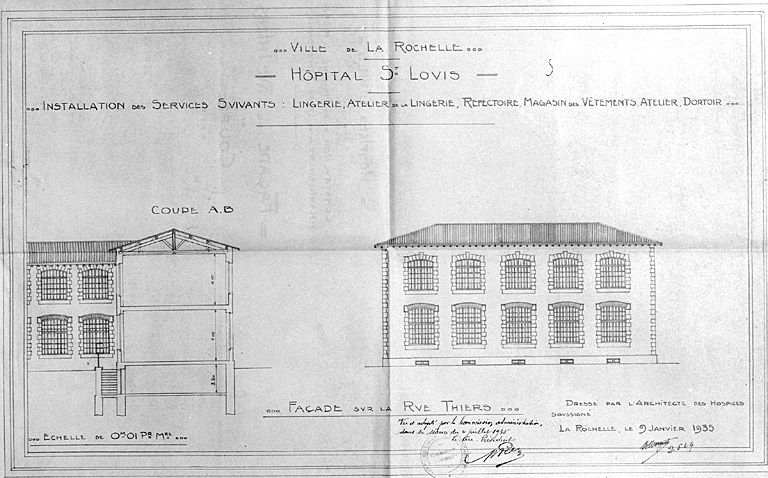 ... VILLE DE LA ROCHELLE ...
— HÔPITAL ST LOVIS —
... INSTALLATION DES SERVICES SVIVANTS : LINGERIE, ATELIER DE LA LINGERIE, RÉFECTOIRE, MAGASIN DES VÊTEMENTS, ATELIER, DORTOIR ...
COUPE A.B
... FAÇADE SVR LA RVE THIERS ...
Vu et adopté par la Commission administrative,
dans sa séance du 4 juillet 1935
Le Vice Président
DRESSÉ PAR L'ARCHITECTE DES HOSPICES
SOVSSIGNÉ
LA ROCHELLE, LE 9 JANVIER 1935
... ECHELLE DE 0M01 PR ML ...